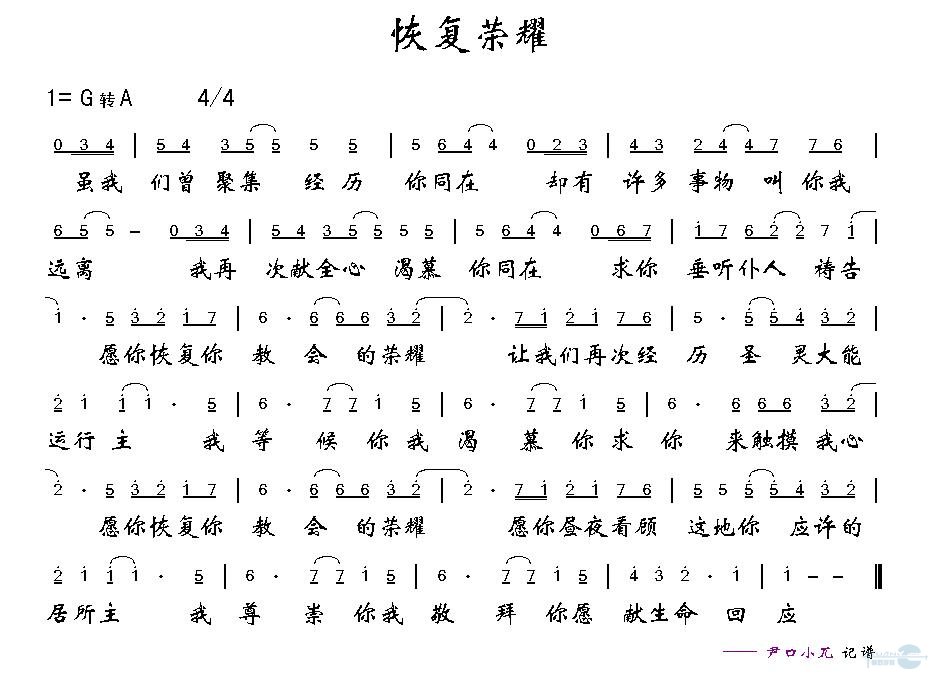 恢复荣耀
1= G 转 A 4/4
0 3 4 | 5 4 3 5 5 5 5 | 5 6 4 4 0 2 3 | 4 3 2 4 4 7 7 6 |
虽我 们曾 聚集 经 历 你同在 却有 许多 事物 叫 你我
6 5 5 – 0 3 4 | 5 4 3 5 5 5 5 | 5 6 4 4 0 6 7 | 1 7 6 2 2 7 1 |
远离 我再 次献全心 渴慕 你同在 求你 垂听仆人 祷告
1 · 5 3 2 1 7 | 6 · 6 6 6 3 2 | 2 · 7 1 2 1 7 6 | 5 · 5 5 4 3 2 |
愿你恢复你 教 会 的荣耀 让我们再次经 历 圣 灵大能
2 1 1 1 · 5 | 6 · 7 7 1 5 | 6 · 7 7 1 5 | 6 · 6 6 6 3 2 |
运行 主 我 等 候 你 我 渴 慕 你 求 你 来触摸 我心
2 · 5 3 2 1 7 | 6 · 6 6 6 3 2 | 2 · 7 1 2 1 7 6 | 5 5 5 5 4 3 2 |
愿你恢复你 教 会 的荣耀 愿你昼夜看顾 这地你 应许的
2 1 1 1 · 5 | 6 · 7 7 1 5 | 6 · 7 7 1 5 | 4 3 2 · 1 | 1 – – ‖
居所主 我 尊 崇 你我 敬 拜 你愿 献生命 回 应
—— 尹口小兀 记谱